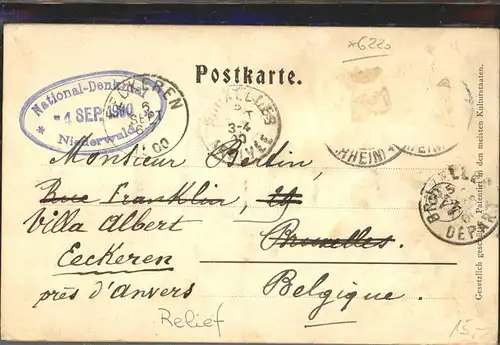 *6220
Postkarte.
National-Denkmal
-4 SEP. 1900
* Niederwald *
EECKEREN
6
SEPT
1900
BRUXELLES
5
SEPT
3-4
ARRIVÉE
(RHEIN)
BRUXELLES
DÉPART
Monsieur Bertin,
Rue Franklin, 19
Villa Albert
Bruxelles.
Eeckeren
près d'Anvers
Belgique.
Relief
15,-
Gesetzlich geschützt. Patentirt in den meisten Kulturstaaten.